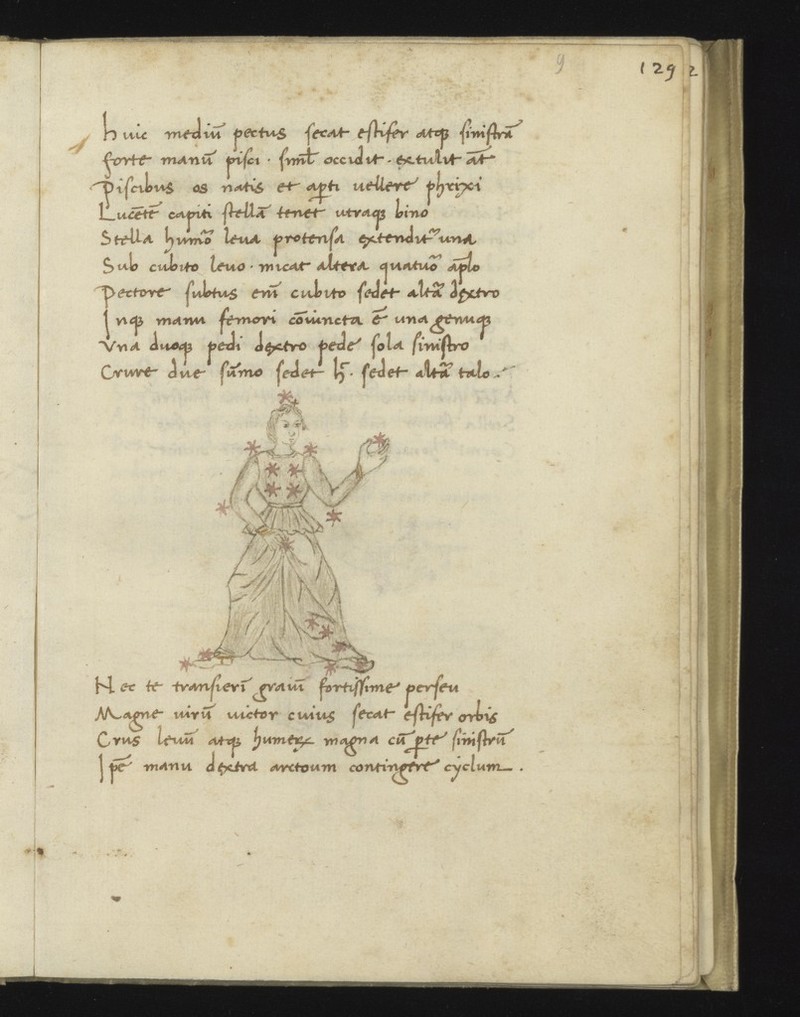 9
129 2
Huic mediū pectus secat estifer atq; sinistrā
forte manū pisci · siml̄ occidit · extulit āt
Piscibus os natis et apti uellere phrixi
Lucētē capiti stellā tenet utraq; bino
Stella humo leua protensa extendit una
Sub cubito leuo · micat altera quatuo aplo
Pectore subtus em̄ cubito sedet altā dextro
Inq; manu femori cōiuncta ē una genuq;
Vna duoq; pedi dextro pede sola sinistro
Crure due sūmo sedet h̄ · sedet altā talo ·
Nec te transieri grauū fortissime perseu
Magne uirū uictor cuius secat estifer orbis
Crus leuū atq; humeꝝ magna cū ꝑte sinistrū
Ip̄e manu dextra arctoum contingere cyclum .